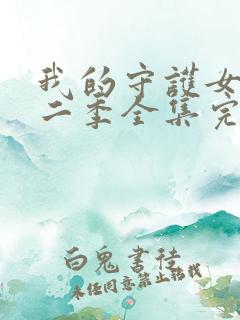 我的守護女
二季全集完
白鬼書徒
未经同意禁止转载